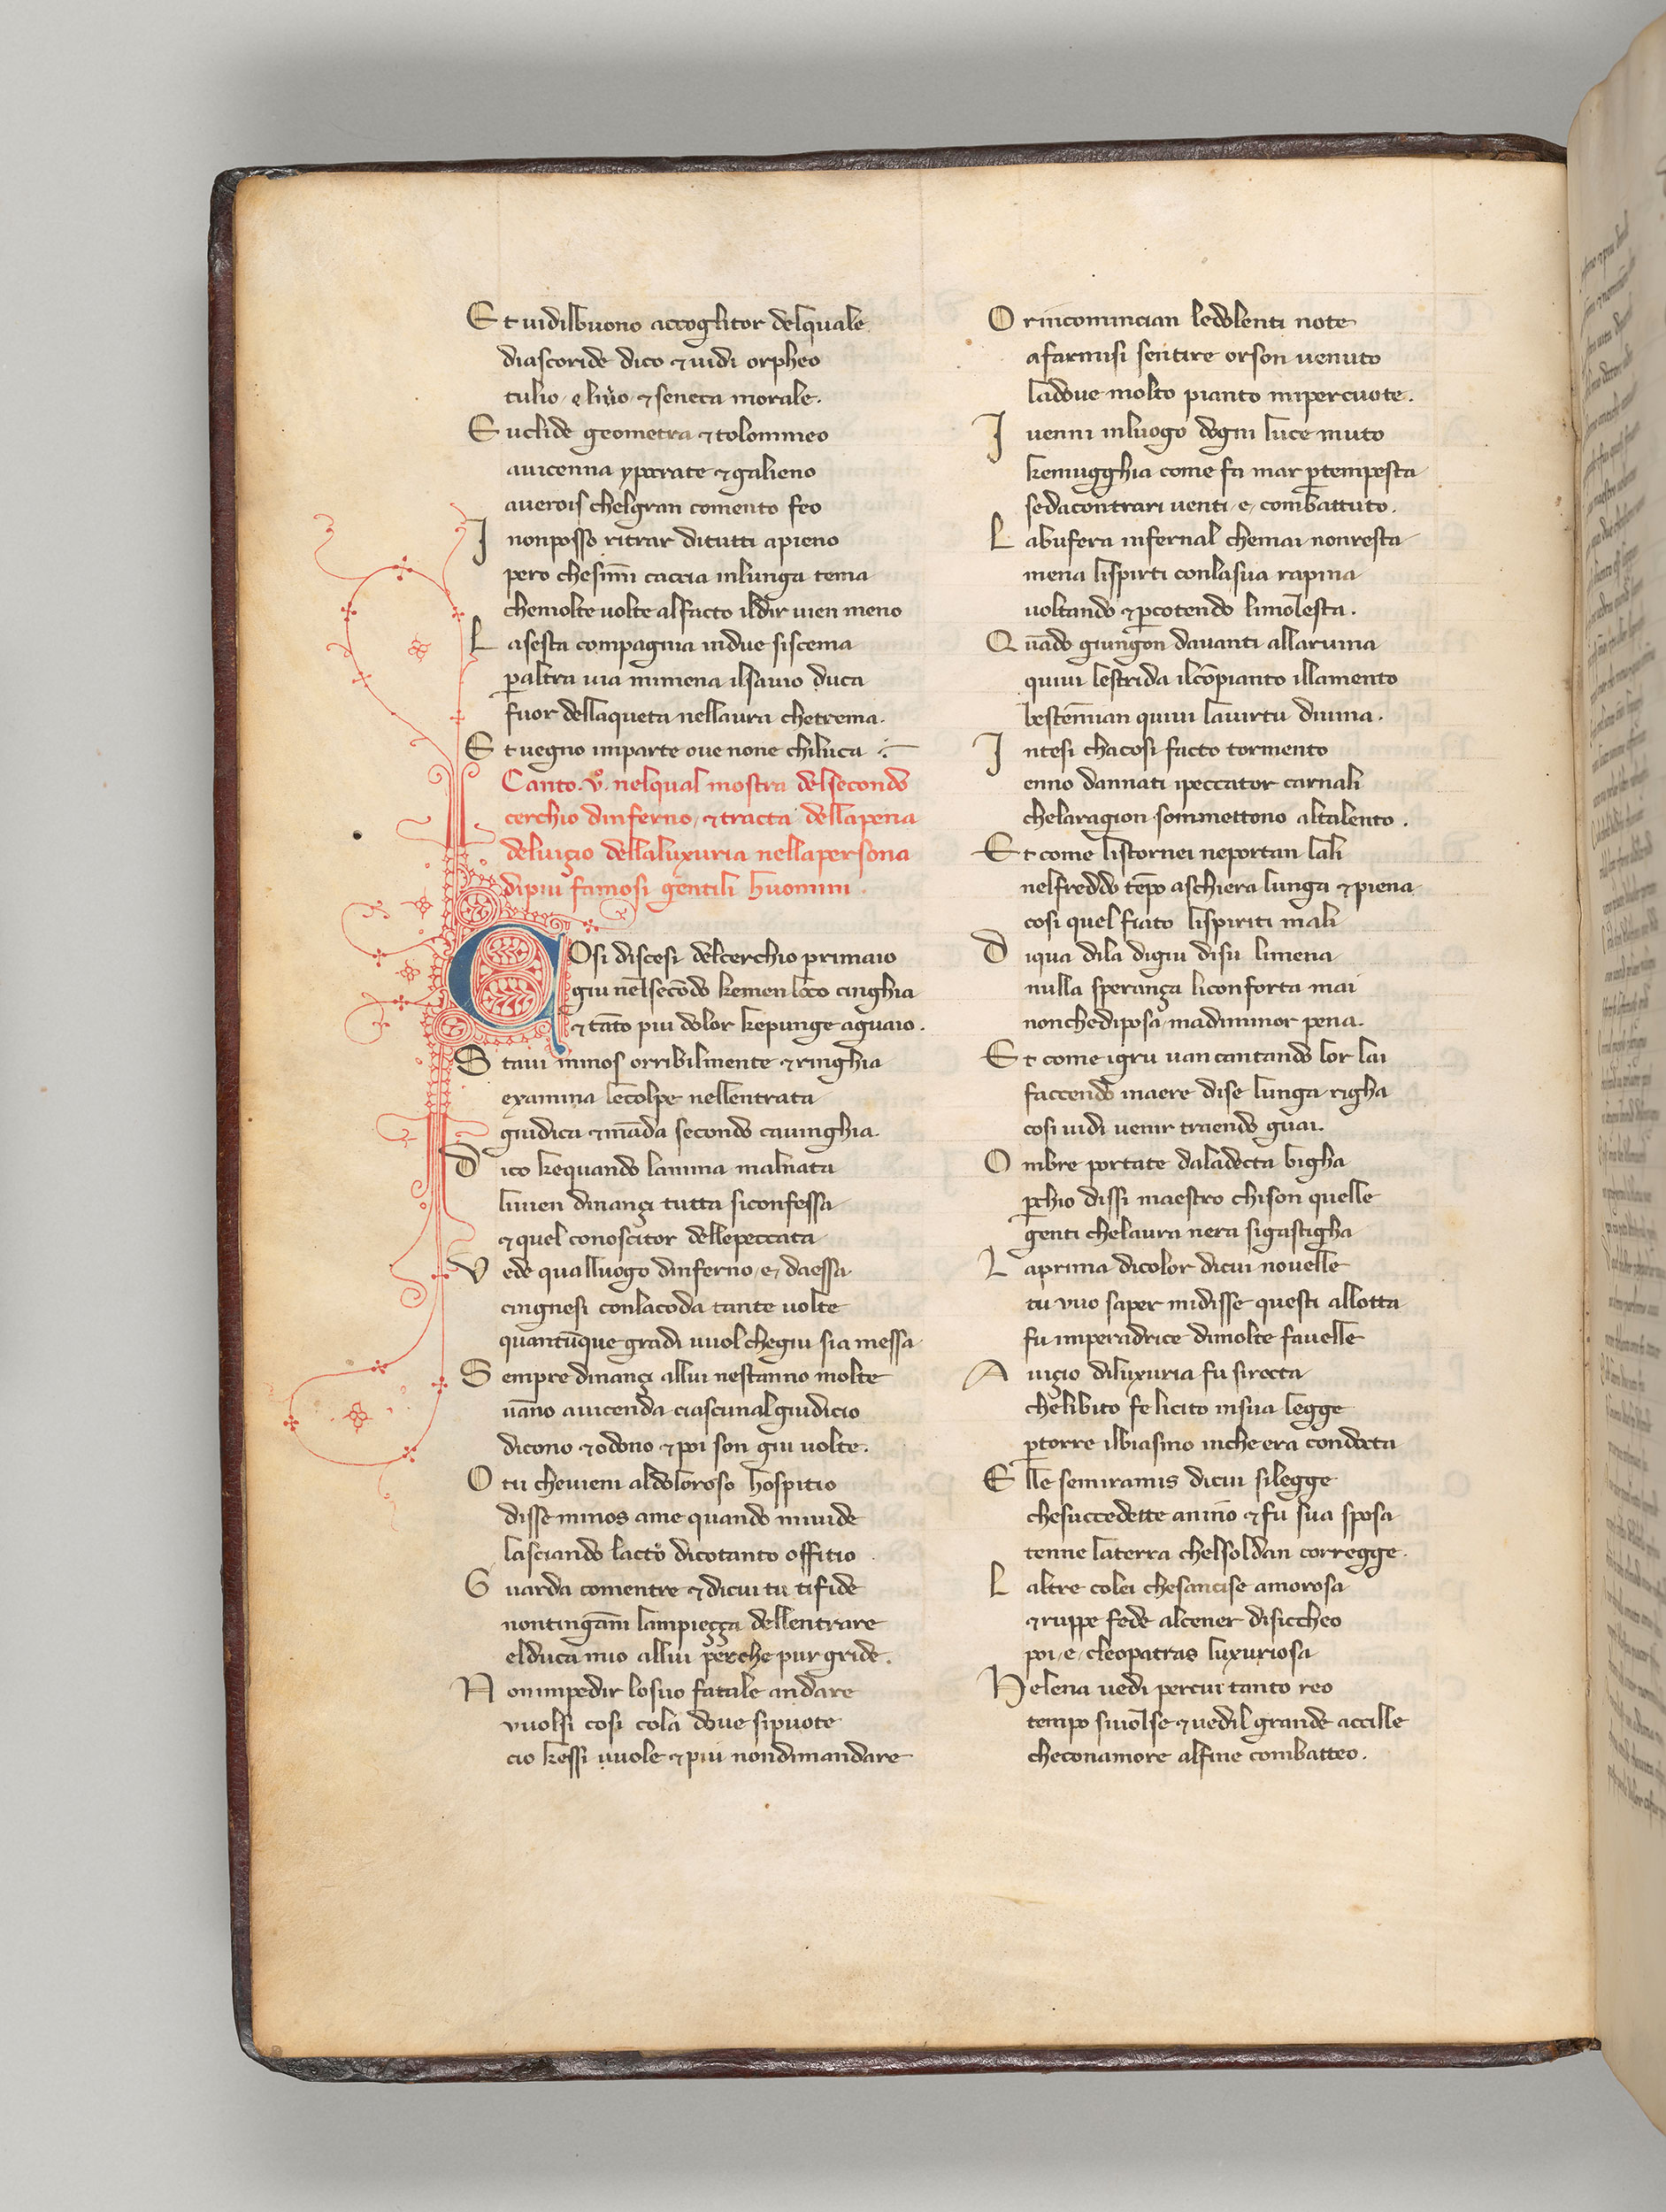 Et uidilbuono accoglitor delquale
diascoride dico ⁊ uidi orpheo
tulio / e liuio / ⁊ seneca morale .
Euclide geometra ⁊ tolommeo
auicenna ypocrate ⁊ galieno
auerois chelgran comento feo
I nonposso ritrar ditutti apieno
pero chesimi caccia inlunga tema
chemolte uolte alfacto ildir uien meno
Lasesta compagnia indue siscema
ꝑaltra uia mimena ilsauio duca
fuor dellaqueta nellaura chetrema .
Et uegno imparte oue none chiluca
Canto . v̊ . nelqual mostra delsecondo
cerchio dinferno / ⁊ tracta dellapena
deluigio dellaluxuria nellapersona
dipiu famosi gentili huomini .
COsi discesi delcerchio primaio
giu nelsecōdo kemen loco cinghia
⁊ tāto piu dolor kepunge aguaio .
Staui minos orribilmente ⁊ ringhia
examina lecolpe nellentrata
giudica ⁊ māda secondo cauinghia .
Dico kequando lanima malnata
liuien dinançi tutta siconfessa
⁊ quel conoscitor dellepeccata
Vede qualluogo dinferno / e / daessa
cingnesi conlacoda tante uolte
quantūque gradi uuol chegiu sia messa
Sempre dinançi allui nestanno molte
uāno auicenda ciascunal giudicio
dicono ⁊ odono ⁊ poi son giu uolte .
O tu cheuieni aldoloroso hospitio
disse minos ame quando miuide
lasciando lacto dicotanto offitio
Guarda comentre ⁊ dicui tu tifide
nontingāni lampieçça dellentrare
elduca mio allui perche pur gride .
Nonimpedir losuo fatale andare
vuolsi cosi cola doue sipuote
cio kessi uuole ⁊ piu nondimandare
Orincomincian ledolenti note
afarmisi sentire orson uenuto
ladoue molto pianto mipercuote .
I uenni inluogo dogni luce muto
kemugghia come fa mar ꝑtempesta
sedacontrari uenti / e / combattuto .
Labufera infernal chemai nonresta
mena lispirti conlasua rapina
uoltando ⁊ ꝑcotendo limolesta .
Quādo giungon dauanti allaruina
quiui lestrida ilcōpianto illamento
bestēmian quiui lauirtu diuina .
Intesi chacosi facto tormento
enno dannati ipeccator carnali
chelaragion sommettono altalento .
Et come listornei neportan lali
nelfreddo tēpo aschiera lunga ⁊ piena
cosi quel fiato lispiriti mali
Diqua dila digiu disu limena
nulla sperança liconforta mai
nonchediposa / madiminor pena .
Et come igru uan cantando lor lai
faccendo inaere dise lunga righa
cosi uidi uenir traendo guai .
Ombre portate daladecta bigha
ꝑchio dissi maestro chison quelle
genti chelaura nera sigastigha
Laprima dicolor dicui nouelle
tu vuo saper midisse questi allotta
fu imperadrice dimolte fauelle
Auigio diluxuria fu sirocta
chelibito fe licito insua legge
ꝑtorre ilbiasmo inche era condocta
Elle semiramis dicui silegge
chesuccedette anino ⁊ fu sua sposa
tenne laterra chelsoldan corregge .
Laltre colei chesancise amorosa
⁊ ruppe fede alcener disiccheo
poi / e / cleopatras luxuriosa
Helena uedi percui tanto reo
tempo siuolse ⁊ uedil grande accille
checonamore alfine combatteo .